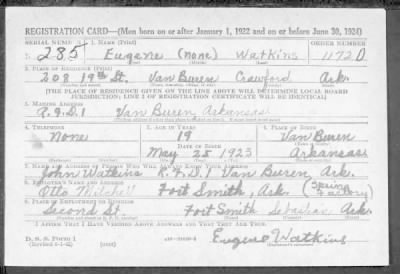 REGISTRATION CARD—(Men born on or after January 1, 1922 and on or before June 30, 1924)
SERIAL NUMBER 1. NAME (Print) ORDER NUMBER
285 Eugene (none) Watkins 11720
2. PLACE OF RESIDENCE (Print)
208 19th St. Van Buren Crawford Ark.
[THE PLACE OF RESIDENCE GIVEN ON THE LINE ABOVE WILL DETERMINE LOCAL BOARD
JURISDICTION; LINE 2 OF REGISTRATION CERTIFICATE WILL BE IDENTICAL]
3. MAILING ADDRESS
R.F.D.1 Van Buren Arkansas
4. TELEPHONE 5. AGE IN YEARS 6. PLACE OF BIRTH
None 19 Van Buren
DATE OF BIRTH
May 25 1923 Arkansas
7. NAME AND ADDRESS OF PERSON WHO WILL ALWAYS KNOW YOUR ADDRESS
John Watkins R.F.D.1 Van Buren Ark.
8. EMPLOYER'S NAME AND ADDRESS
Otto Mitchell Fort Smith, Ark. (Spring Factory)
9. PLACE OF EMPLOYMENT OR BUSINESS
Second St. Fort Smith Sebastian Ark.
I AFFIRM THAT I HAVE VERIFIED ABOVE ANSWERS AND THAT THEY ARE TRUE.
D. S. S. FORM 1
Eugene Watkins